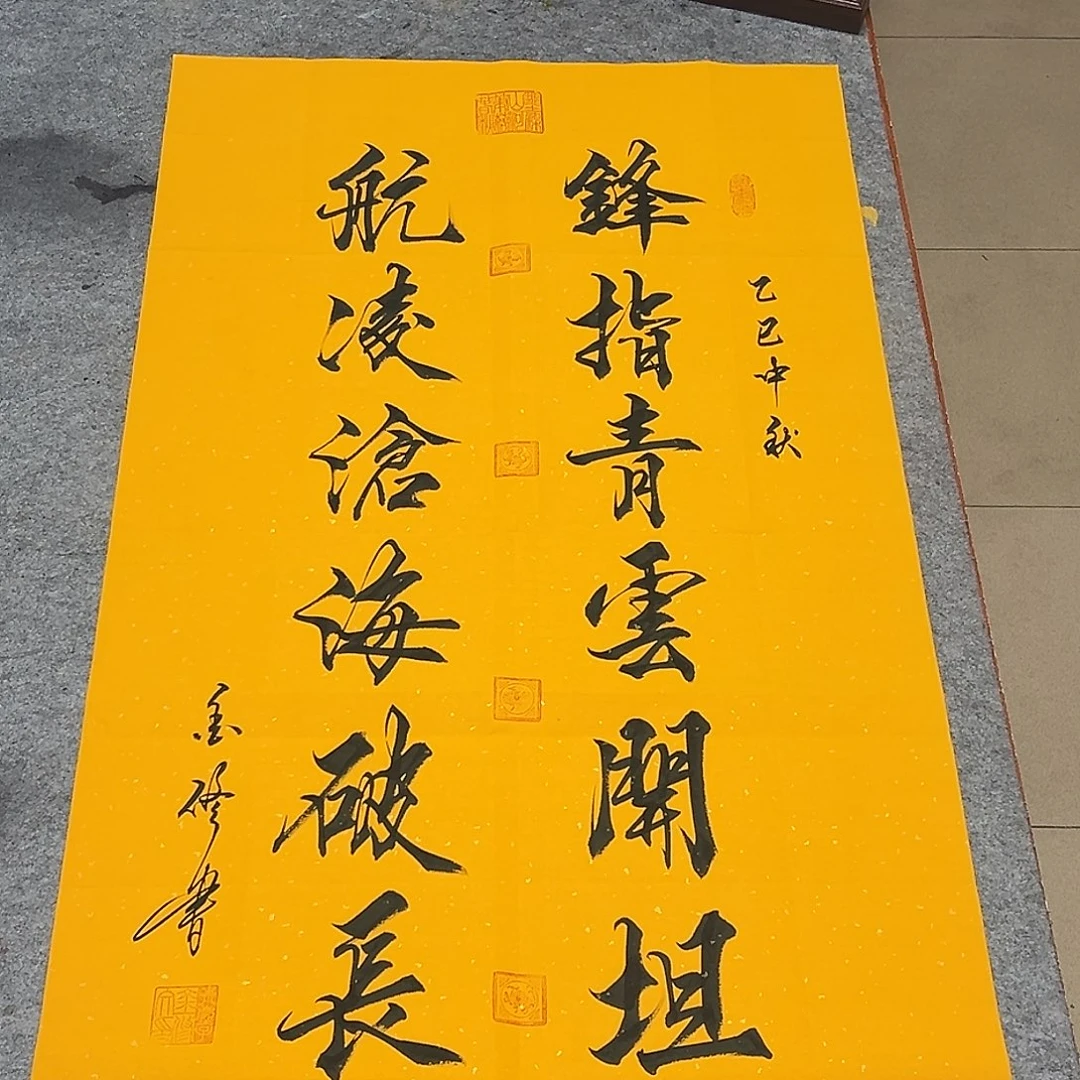 乙巳中秋
鋒指青雲開坦
航凌滄海破長
金修書